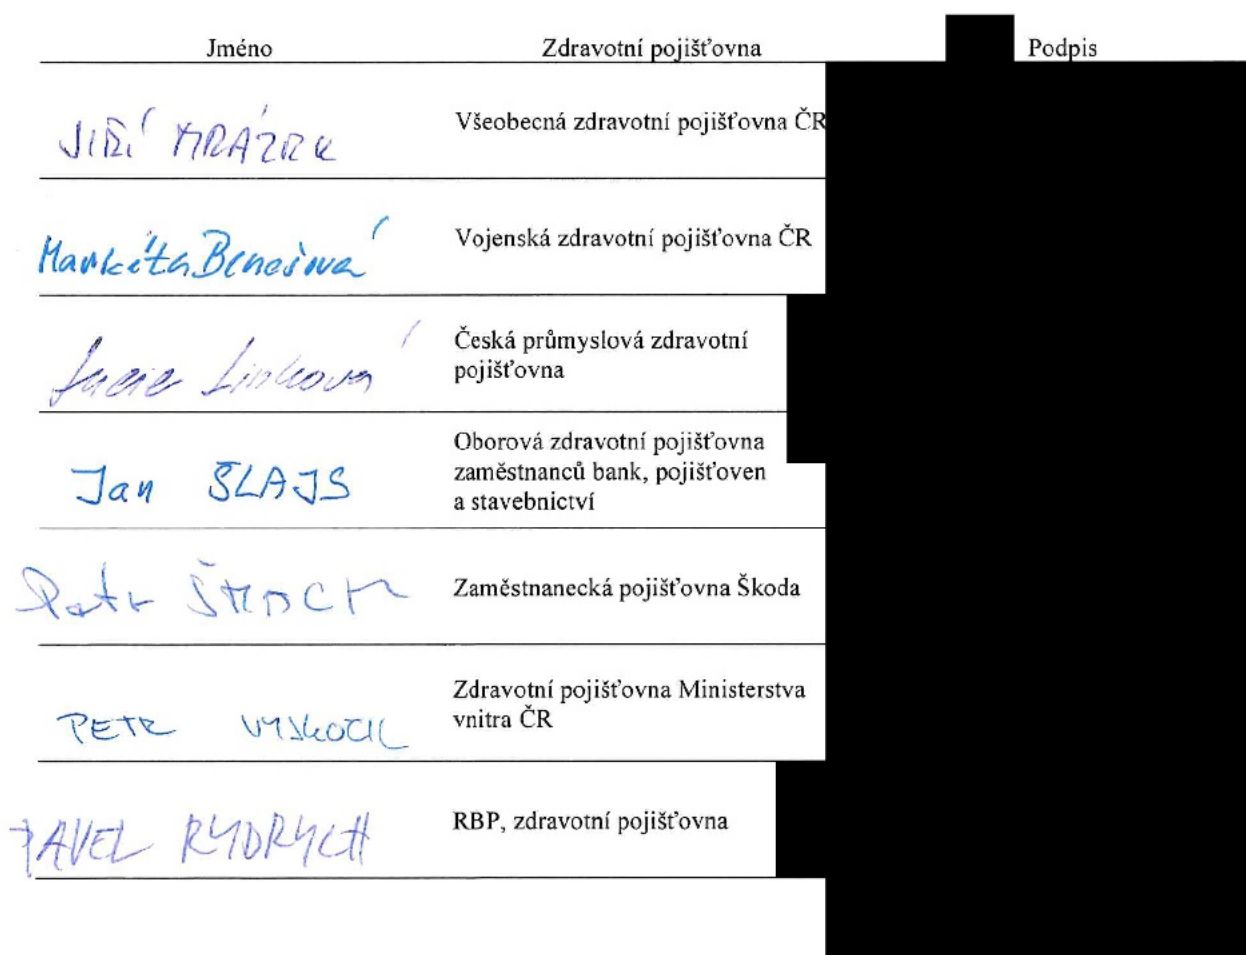 Jméno Zdravotní pojišťovna Podpis
JIŘÍ MRÁZEK Všeobecná zdravotní pojišťovna ČR
Markéta Benešová Vojenská zdravotní pojišťovna ČR
Lucie Linková Česká průmyslová zdravotní
pojišťovna
Jan ŠLAJS Oborová zdravotní pojišťovna
zaměstnanců bank, pojišťoven
a stavebnictví
Petr Zaměstnanecká pojišťovna Škoda
PETR VYSKOČIL Zdravotní pojišťovna Ministerstva
vnitra ČR
PAVEL RYDRYCH RBP, zdravotní pojišťovna